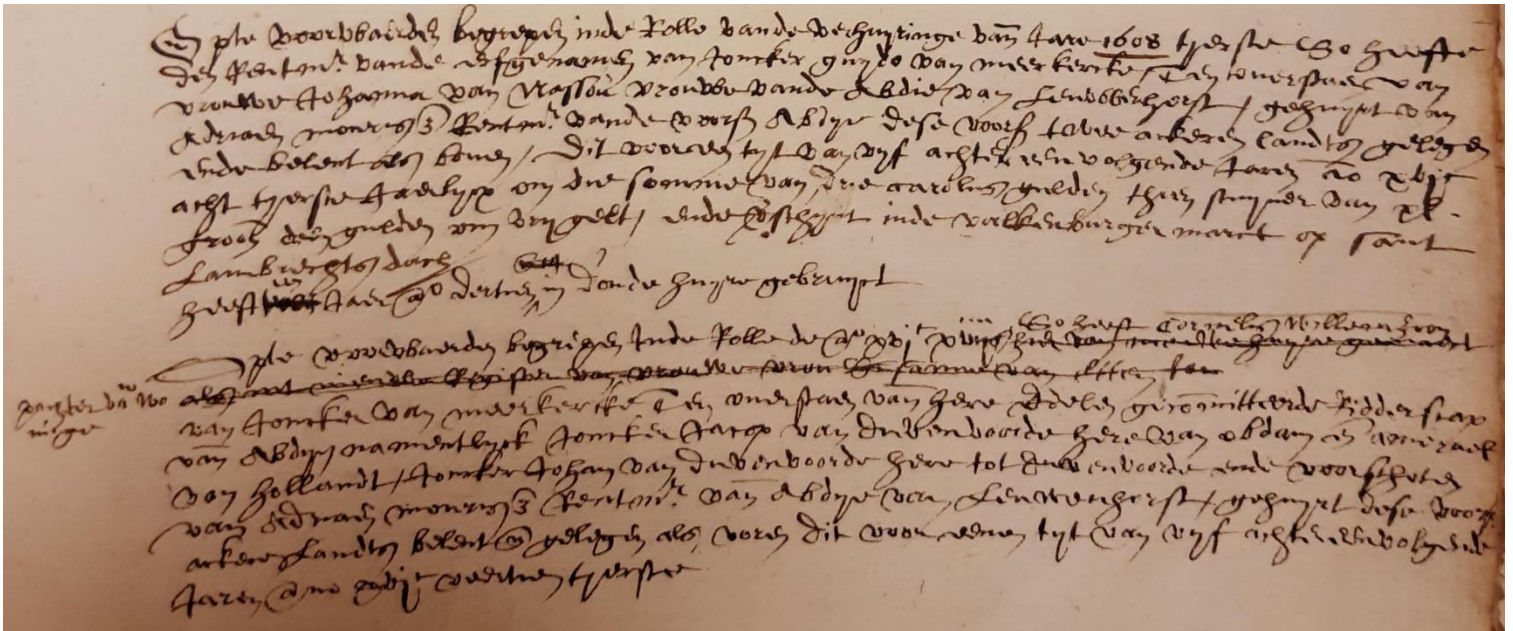 Opte voorwaerden begrepen inde Rolle vande verhuijringe van Jare 1608 tjerste So heefte
den Rentmr vande erfgenamen van Joncker guijdo van meerkercke, Ten overstaen van
vrouwe Johanna van Nassou vrouwe vande Abdie van Leuwenhorst, gehuijrt van
Adriaen mourijsz Rentmr vande voorsz Abdije dese voorsz twee ackeren landts gelegen
ende belent als boven, Dit voor een tijt van vijf achter een volgende Jaren ao xvjc
acht tjerste Jaerlijx om die somme van drie carolus gulden thien stuijver van xl.
grooten den gulden om vrij gelt, ende verschijnt inde valkenburger marct op sant
Lambrechts dach
heeft een Jaer ao dertien in d'oude huijre gebruijct
Opte voorwaerden begrepen Inde Rolle de ao xvjc xiiij So heeft Cornelis Willemsz
als int nieuwe Register van vrouwe
van Joncker van meerkercke Ten overstaen van here Edelen gecommitteerde Ridderscap
van Abdije namentlijck Joncker Jacop van duvenvoorde here van obdam en Amerael
van hollandt, Joncker Johan van duvenvoorde here tot duvenvoorde ende voorschoten
van Adriaen mourijsz Rentmr van Abdije van Leuwenhorst, gehuijrt dese voorsz
ackere Landts belent en gelegen als voren dit voor eenen tijt van vijf achtereenvolgende
Jaren anno xvjc veertien tjerste